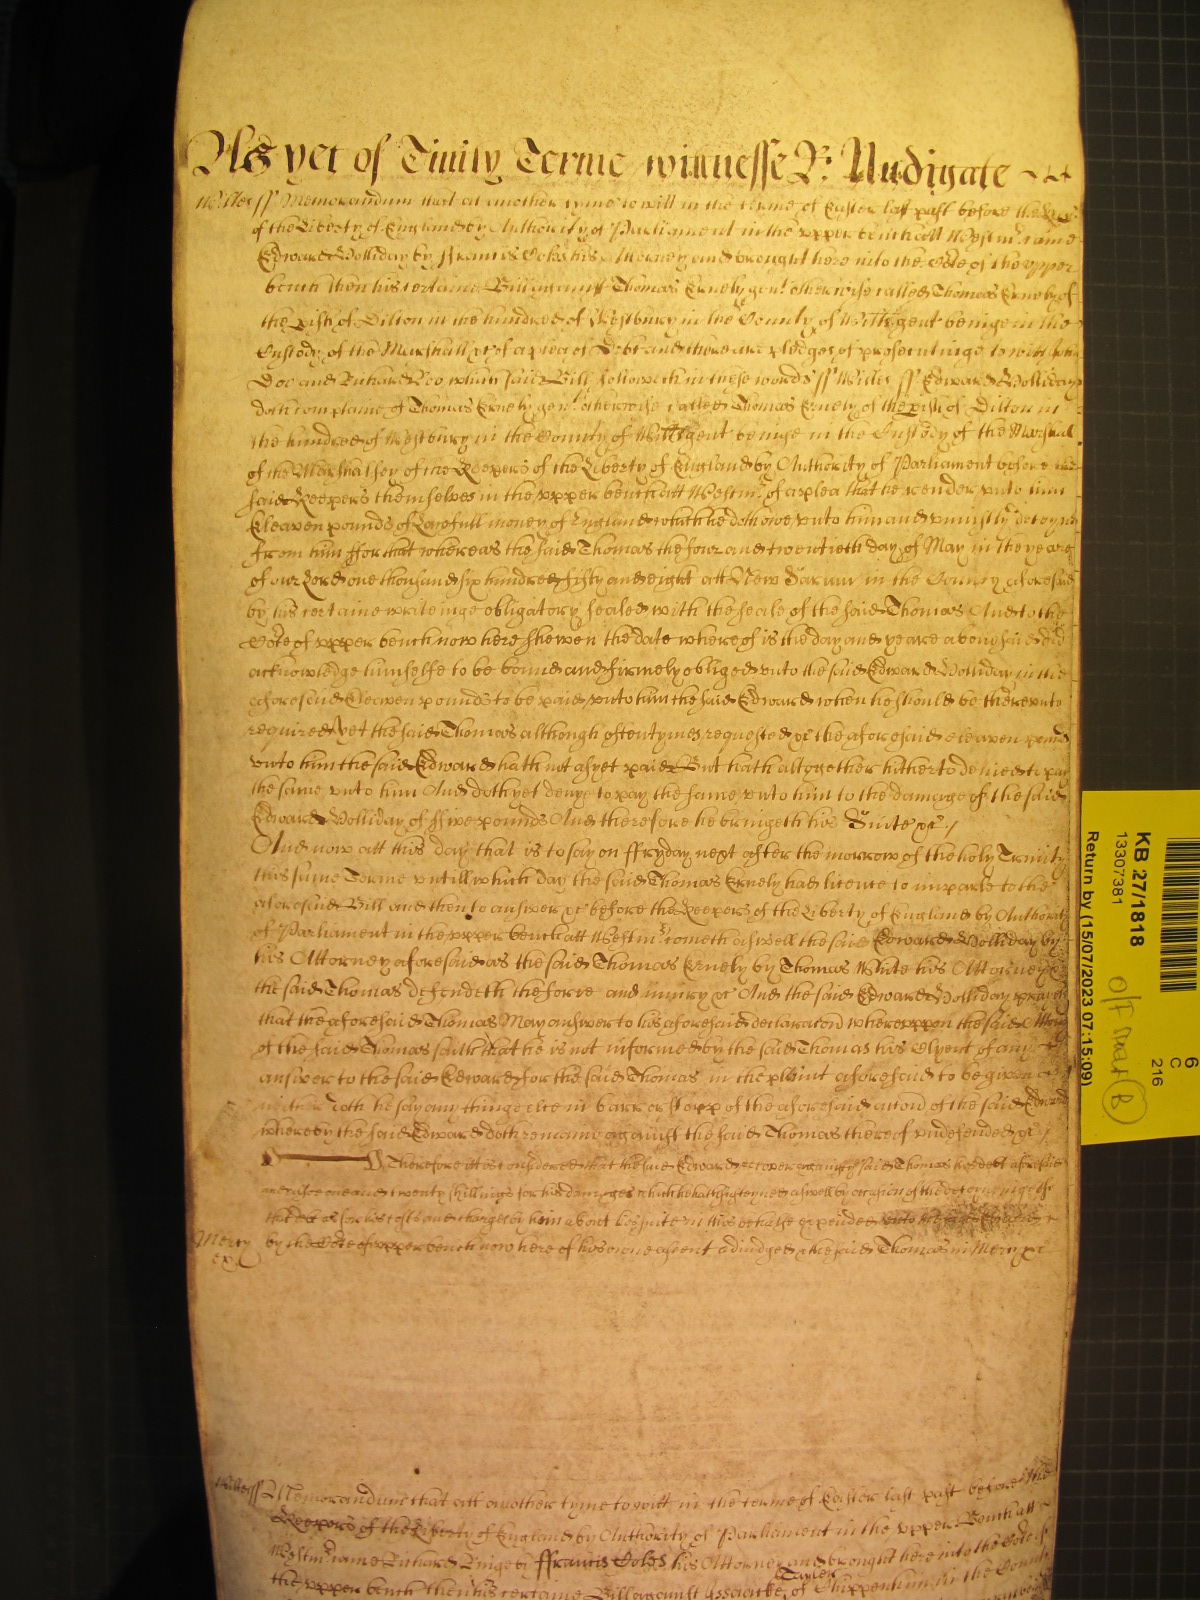 As yet of Trinity Terme witnesse R: Nudigate
Wiltes ss Memorandum that att another tyme to witt in the terme of Easter last past before the Keepers
of the Liberty of England by Authority of Parliament in the upper bench att Westmr. came
Edward Holliday by ffrancis Coles his Attorney and brought here into the Cote of the upper
bench then his certaine Bill against Thomas Ernely gent otherwise called Thomas Ernely of
the pish of Dilton in the hundred of Westbury in the County of Wiltes gent beinge in the
Custody of the Marshall &c of a plea of Debt and there are pledges of prosecutinge to witt John
Doe and Richard Roo which said Bill followeth in these words ss Wiltes ss Edward Holliday
doth complaine of Thomas Ernely gent otherwise called Thomas Ernely of the pish of Dilton in
the hundred of Westbury in the County of Wiltes gent beinge in the Custody of the Marshal
of the Marshalsey of the Keepers of the Liberty of England by Authority of Parliament before the
said Keepers themselves in the upper bench att Westmr. of a plea that he render unto him
Eleaven pounds of Lawfull money of England which he doth owe unto him and uniustly detaynes
from him ffor that whereas the said Thomas the four and twentieth day of May in the yeare
of our Lord one thousand six hundred fifty and eight att New Sarum in the County aforesaid
by his certaine writeinge obligatory sealed with the seale of the said Thomas And to the
Cote of upper bench now here shewen the date whereof is the day and yeare aboue said did
acknowledge himselfe to be bound and firmely obliged unto the said Edward Holliday in the
aforesaid Eleaven pounds to be paid unto him the said Edward when he should be thereunto
required yet the said Thomas although oftentymes requested &c the aforesaid eleaven pounds
unto him the said Edward hath not as yet paid But hath altogether hitherto denied to pay
the same unto him And doth yet denye to pay the same unto him to the damage of the said
Edward Holliday of ffive pounds And therefore he bringeth his Suite &c /
And now att this day that is to say on ffryday next after the morrow of the holy Trinity
this same Terme untill which day the said Thomas Ernely had licence to imparle to the
aforesaid Bill and then to answer &c before the Keepers of the Liberty of England by Authority
of Parliament in the upper bench att Westmr. cometh aswell the said Edward Holliday by
his Attorney aforesaid as the said Thomas Ernely by Thomas White his Attorney &
the said Thomas defendeth the force and iniury &c And the said Edward Holliday prayeth
that the aforesaid Thomas May answer to his aforesaid declaracon whereuppon the said Attorny
of the said Thomas saith that he is not informed by the said Thomas his Clyent of any
answer to the said Edward for the said Thomas in the plaint aforesaid to be given
neither doth he say any thinge else in barr or stopp of the aforesaid accon of the said Edward
whereby the said Edward doth remaine against the said Thomas thereof undefended &c /
Therefore itt is considered that the said Edward recover against ye said Thomas his debt aforesaid
and alsoe one and twenty shillings for his damages which he hath susteyned aswell by occasion of the deteyninge of
that debt as for his costs and charges by him about his suite in this behalfe expended
Mercy by the Cote of upper bench now here of his owne assent adiudged & the said Thomas in Mercy &c
ex
Wiltes ss Memorandum that att another tyme to witt in the terme of Easter last past before the
Keepers of the Liberty of England by Authority of Parliament in the upper Bench att
Westmr. came Richard by ffrancis Coles his Attorney and brought here into the Cote of
Tayler
the upper bench then his certaine Bill against of Chippenham in the County
KB 27/1818
13307381
Return by (15/07/2023 07:15:09)
6
C
216